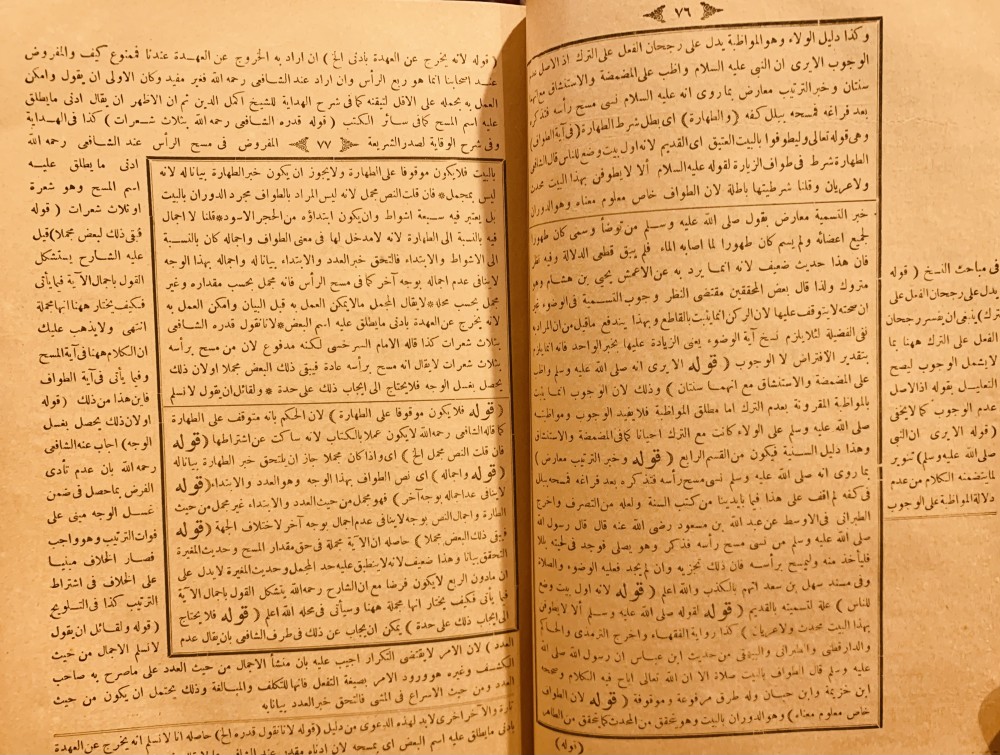 ٧٦
وكذا دليل الولاء وهو المواظبة يدل على رجحان الفعل على الترك اذ الاصل عدم
الوجوب الايرى ان النبى عليه السلام واظب على المضمضة والاستنشاق مع انهما
سنتان وخبر الترتيب معارض بما روى انه عليه السلام نسى مسح رأسه فتذكره
بعد فراغه فمسحه ببلل كفه (والطهارة) اى بطل شرط الطهارة (فى آية الطواف)
وهى قوله تعالى وليطوفوا بالبيت العتيق اى القديم لانه اول بيت وضع للناس قال الشافعى
الطهارة شرط فى طواف الزيارة لقوله عليه السلام ألا لايطوفن بهذا البيت محدث
ولاعريان وقلنا شرطيتها باطلة لان الطواف خاص معلوم معناه وهو الدوران
خبر التسمية معارض بقول صلى الله عليه وسلم من توضأ وسمى كان طهورا
لجميع اعضائه ولم يسم كان طهورا لما اصابه الماء فلم يبق قطعى الدلالة وفيه نظر
فان هذا حديث ضعيف لانه انما يرد به عن الاعمش يحيى بن هشام وهو
متروك ولذا قال بعض المحققين مقتضى النظر وجوب التسمية فى الوضوء غير
ان صحته لايتوقف عليها لان الركن انما يثبت بالقاطع وبهذا يندفع ماقيل من ان المراد به
نفى الفضيلة لئلا يلزم نسخ آية الوضوء يعنى الزيادة عليها بخبر الواحد فانه انما يلزم
بتقدير الافتراض لا الوجوب (قوله الايرى انه صلى الله عليه وسلم واظب
على المضمضة والاستنشاق مع انهما سنتان) وذلك لان الوجوب انما يثبت
بالمواظبة المقرونة بعدم الترك اما مطلق المواظبة فلا يفيد الوجوب ومواظبته
صلى الله عليه وسلم على الولاء كانت مع الترك احيانا كما فى المضمضة والاستنشاق
وهذا دليل السنية فيكون من القسم الرابع (قوله وخبر الترتيب معارض)
بما روى انه صلى الله عليه وسلم نسى مسح رأسه فتذكره بعد فراغه فمسحه ببلل
فى كفه لم اقف على هذا فيما بايدينا من كتب السنة ولعله من التصرف واخرج
الطبرانى فى الاوسط عن عبد الله بن مسعود رضى الله عنه قال قال رسول الله
صلى الله عليه وسلم من نسى مسح رأسه فذكر وهو يصلى فوجد فى لحيته بللا
فليأخذ منه وليمسح برأسه فان ذلك يجزيه وان لم يجد فعليه الوضوء والصلاة
وفى مسند سهل بن سعد اتهم بالكذب والله اعلم (قوله لانه اول بيت وضع
للناس) علة لتسميته بالقديم (قوله لقوله صلى الله عليه وسلم ألا لايطوفن
بهذا البيت محدث ولاعريان) كذا رواية الفقهاء واخرج الترمذى والحاكم
والدارقطنى والطبرانى والبيهقى من حديث ابن عباس ان رسول الله صلى الله
عليه وسلم قال الطواف بالبيت صلاة الا ان الله تعالى اباح فيه الكلام وصححه
ابن خزيمة وابن حبان وله طرق مرفوعة وموقوفة (قوله لان الطواف
خاص معلوم معناه) وهو الدوران بالبيت وهو يتحقق من المحدث كما يتحقق من الطاهر
(قوله)
فى مباحث النسخ (قوله
يدل على رجحان الفعل على
الترك) ينبغى ان يفسر رجحان
الفعل على الترك ههنا بما
لايشمل الوجوب ليصح
التعليل بقوله اذ الاصل
عدم الوجوب كما لايخفى
(قوله الايرى ان النبى
صلى الله عليه وسلم) تنوير
لما يتضمنه الكلام من عدم
دلالة المواظبة على الوجوب
(قوله لانه يخرج عن العهدة بادنى الخ) ان اراد به الخروج عن العهدة عندنا فممنوع كيف والمفروض
عند اصحابنا انما هو ربع الرأس وان اراد عند الشافعى رحمه الله فغير مفيد وكان الاولى ان يقول وامكن
العمل به بحمله على الاقل لتيقنه كما فى شرح الهداية للشيخ اكمل الدين ثم ان الاظهر ان يقال ادنى مايطلق
عليه اسم المسح كما فى سائر الكتب (قوله قدره الشافعى رحمه الله بثلاث شعرات) كذا فى الهداية
وفى شرح الوقاية لصدر الشريعة
٧٧
المفروض فى مسح الرأس عند الشافعى رحمه الله
ادنى ما يطلق عليه
اسم المسح وهو شعرة
او ثلاث شعرات (قوله
فبقى ذلك لبعض مجملا) قيل
عليه الشارح يستشكل
القول باجمال الآية فيما يأتى
فكيف يختار ههنا انها مجملة
انتهى ولايذهب عليك
ان الكلام ههنا فى آية المسح
وفيما يأتى فى آية الطواف
فاين هذا من ذلك (قوله
اولان ذلك يحصل بغسل
الوجه) اجاب عنه الشافعى
رحمه الله بان عدم تأدى
الفرض بما حصل فى ضمن
غسل الوجه مبنى على
فوات الترتيب وهو واجب
فصار الخلاف مبنيا
على الخلاف فى اشتراط
الترتيب كذا فى التلويح
(قوله ولقائل ان يقول
لانسلم الاجمال من حيث
بالبيت فلايكون موقوفا على الطهارة ولايجوز ان يكون خبر الطهارة بيانا له لانه
ليس بمجمل * فان قلت النص مجمل لانه ليس المراد بالطواف مجرد الدوران بالبيت
بل يعتبر فيه سبعة اشواط وان يكون ابتداؤه من الحجر الاسود * قلنا لا اجمال
فيه بالنسبة الى الطهارة لانه لامدخل لها فى معنى الطواف واجماله كان بالنسبة
الى الاشواط والابتداء فالتحق خبر العدد والابتداء بيانا له واجماله بهذا الوجه
لاينافى عدم اجماله بوجه آخر كما فى مسح الرأس فانه مجمل بحسب مقداره وغير
مجمل بحسب محله * لايقال المجمل مالايمكن العمل به قبل البيان وامكن العمل به
لانه يخرج عن العهدة بادنى مايطلق عليه اسم البعض * لانا نقول قدره الشافعى
بثلاث شعرات كذا قاله الامام السرخسى لكنه مدفوع لان من مسح برأسه
بثلاث شعرات لايقال انه مسح برأسه عادة فبقى ذلك البعض مجملا اولان ذلك
يحصل بغسل الوجه فلايحتاج الى ايجاب ذلك على حدة * ولقائل ان يقول لانسلم
(قوله فلايكون موقوفا على الطهارة) لان الحكم بانه متوقف على الطهارة
كما قاله الشافعى رحمه الله لايكون عملا بالكتاب لانه ساكت عن اشتراطها (قوله
فان قلت النص مجمل الخ) اى واذا كان مجملا جاز ان يلتحق خبر الطهارة بيانا له
(قوله واجماله) اى نص الطواف بهذا الوجه وهو العدد والابتداء (قوله
لاينافى عدم اجماله بوجه آخر) فهو مجمل من حيث العدد والابتداء غير مجمل من حيث
الطهارة واجمال النص بوجه لاينافى عدم اجمال بوجه آخر لاختلاف الجهة (قوله
فبقى ذلك البعض مجملا) حاصله ان الآية مجملة فى حق مقدار المسح وحديث المغيرة
التحق بيانا وهذا ضعيف لانه لاينطبق عليه حد المجمل وحديث المغيرة لايدل على
ان مادون الربع لايكون فرضا مع ان الشارح رحمه الله يتشكل القول باجمال الآية
فيما يأتى فكيف يختار انها مجملة ههنا وسيأتى فى محله الله اعلم (قوله فلايحتاج
الى ايجاب ذلك على حدة) يمكن ان يجاب عن ذلك فى طرف الشافعى بان يقال عدم
العدد) لان الامر لايقتضى التكرار اجيب عليه بان منشأ الاجمال من حيث العدد على ماصرح به صاحب
الكشف وغيره هو ورود الامر بصيغة التفعل فانها للتكلف والمبالغة وذلك يحتمل ان يكون من حيث
العدد ومن حيث الاسراع فى المشى فالتحق خبر العدد بيانا به
تارة والآخر اخرى لابد لهذه الدعوى من دليل (قوله لانا نقول قدره الخ) حاصله انا لانسلم انه يخرج عن العهدة
بادنى مايطلق عليه اسم البعض